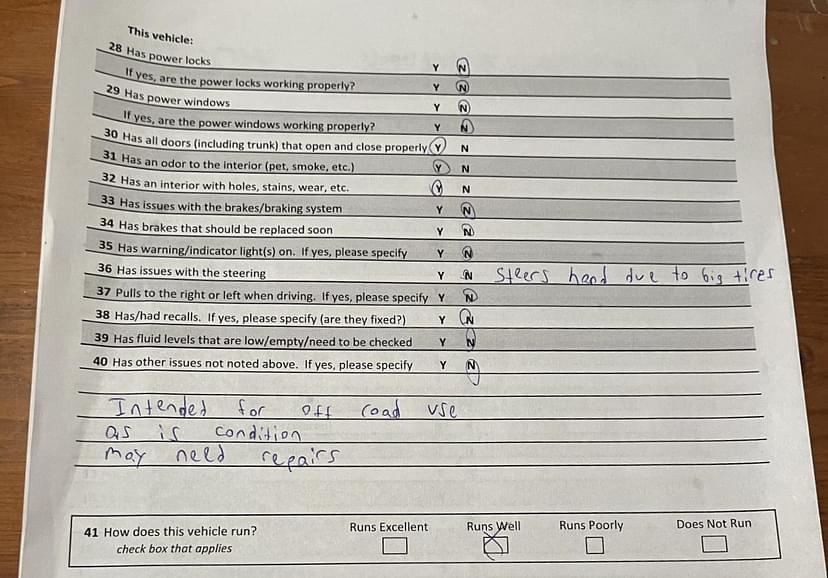 This vehicle:
28 Has power locks Y N
If yes, are the power locks working properly? Y N
29 Has power windows Y N
If yes, are the power windows working properly? Y N
30 Has all doors (including trunk) that open and close properly Y N
31 Has an odor to the interior (pet, smoke, etc.) Y N
32 Has an interior with holes, stains, wear, etc. Y N
33 Has issues with the brakes/braking system Y N
34 Has brakes that should be replaced soon Y N
35 Has warning/indicator light(s) on. If yes, please specify Y N
36 Has issues with the steering Y N Steers hard due to big tires
37 Pulls to the right or left when driving. If yes, please specify Y N
38 Has/had recalls. If yes, please specify (are they fixed?) Y N
39 Has fluid levels that are low/empty/need to be checked Y N
40 Has other issues not noted above. If yes, please specify Y N
Intended for off road use
as is condition
may need repairs
41 How does this vehicle run? Runs Excellent Runs Well Runs Poorly Does Not Run
check box that applies